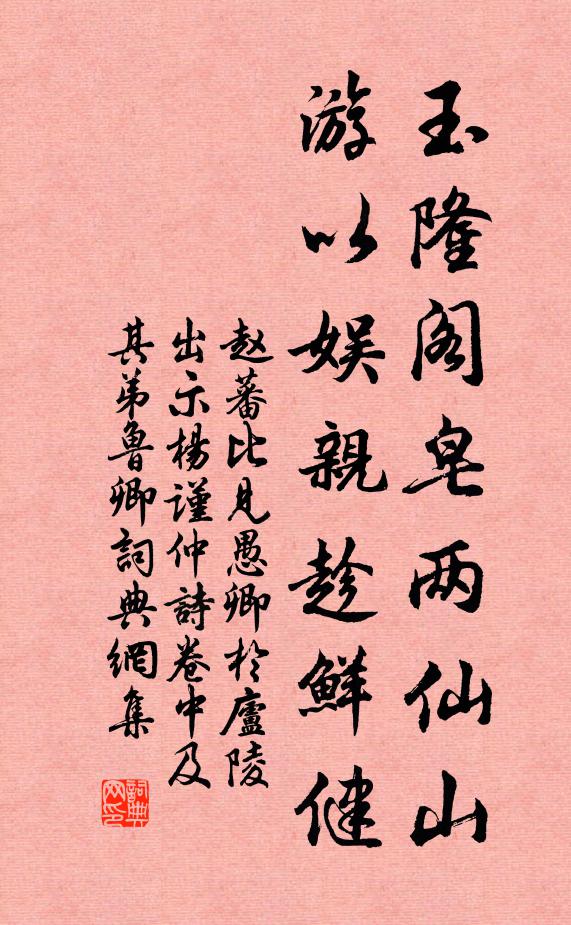 玉隆阁皂两仙山
游以娱親趁鮮健
赵蕃比見愚卿於廬陵
出示楊謹仲詩卷中及
其弟魯卿詞典網集
詞典网印